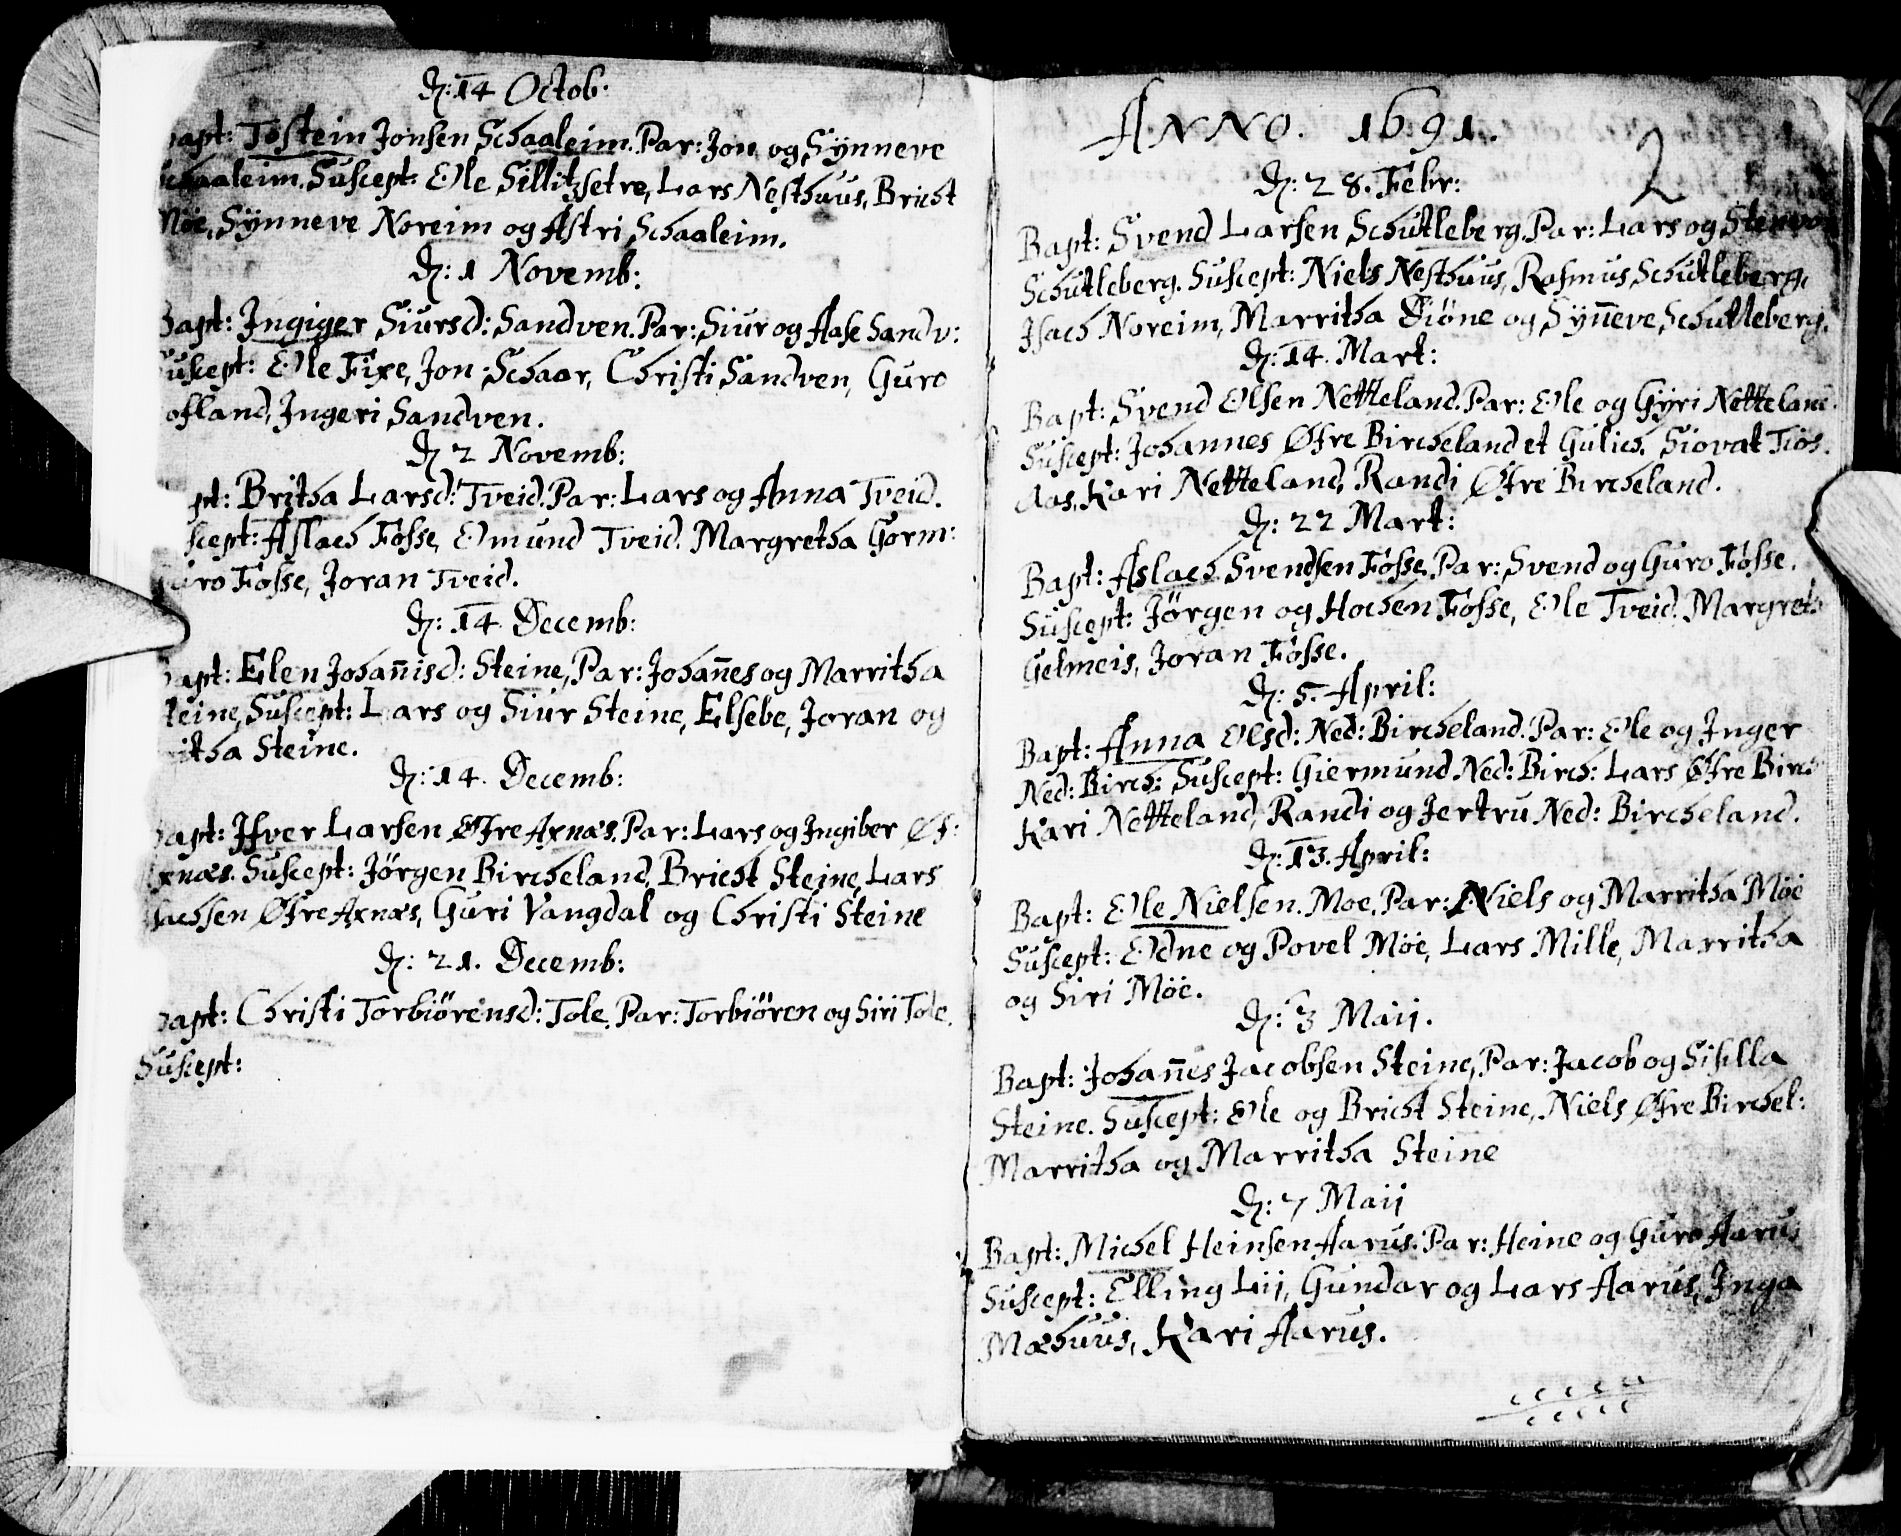 D: 14 Octob:
apt: Tostein Jonsen Schaaleim. Par: Jon og Synneve
Schaaleim. Suscept: Ole Sillitzsetre, Lars Nesthuus, Bricht
Möe, Synneve Noreim og Astri Schaaleim.
D: 1 Novemb:
Bapt: Ingiger Siursd: Sandven. Par: Siur og Aase Sandv:
uscept: Ole Fixe, Jon Schaar, Christi Sandven, Guro
ofland, Ingeri Sandven.
D 2 Novemb:
pt: Britha Larsd: Tveid. Par: Lars og Anna Tveid.
scept: Aslach Fosse, Omund Tveid. Margretha Gorm:
uro Fosse, Joran Tveid.
D: 14 Decemb:
apt: Elen Johan̄isd: Steine, Par: Johan̄es og Marritha
teine, Suscept: Lars og Siur Steine, Elsebe, Joran og
itha Steine.
D: 14. Decemb:
apt: Ifver Larsen Øfre Axnæs. Par: Lars og Ingiber Øf:
xnæs. Suscept: Jörgen Bircheland, Bricht Steine, Lars
achsen Øfre Axnæs, Guri Vangdal og Christi Steine
D: 21. Decemb:
apt: Christi Torbiörensd: Tole. Par: Torbiören og Siri Tole.
Suscept:
ANNO. 1691.
2
D: 28. Febr:
Bapt: Svend Larsen Schutleberg. Par: Lars og
Schutleberg. Suscept: Niels Nesthuus, Rasmus Schutleberg,
Isach Noreim, Marritha Diöne og Syn̄eve Schutleberg.
D: 14. Mart:
Bapt: Svend Olsen Netteland. Par: Ole og Gyri Netteland.
Suscept: Johannes Øfre Bircheland et Gulich. Siovat Tios.
Aas, Kari Netteland, Randi Øfre Bircheland.
D: 22 Mart:
Bapt: Aslach Svendsen Fosse. Par: Svend og Guro Fosse.
Suscept: Jörgen og Hochen Fosse, Ole Tveid. Margreth
Gelmeis, Joran Fosse.
D: 5. April:
Bapt: Anna Olsd: Ned: Bircheland. Par: Ole og Inger
Ned: Birch: Suscept: Giermund Ned: Birch: Lars Øfre Birch
Kari Netteland, Randi og Jertru Ned: Bircheland.
D: 13. April:
Bapt: Ole Nielsen. Moe. Par: Niels og Marritha Möe
Suscept: Odne og Povel Möe, Lars Mille, Marritha
og Siri Möe.
D: 3 Maij.
Bapt: Johan̄es Jacobsen Steine, Par: Jacob og Sisilla
Steine. Suscept: Ole og Bricht Steine, Niels Øfre Birchel:
Marritha og Marritha Steine
D: 7 Maij
Bapt: Michel Heinsen Aarus. Par: Heine og Guro Aarus
Suscept: Elling Lij, Gundar og Lars Aarus, Inga
Mæhuus, Kari Aarus.